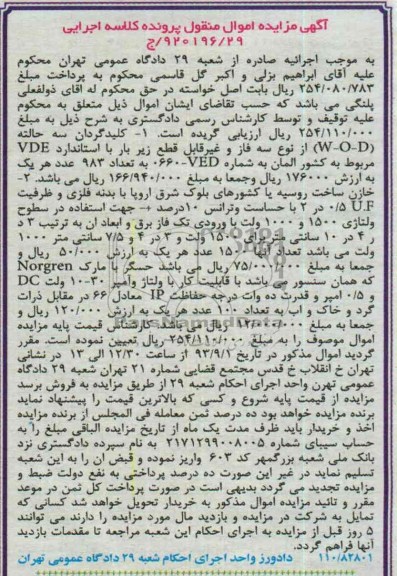 آگهی مزایده اموال منقول پرونده کلاسه اجرایی
۹۲۰۱۹۶/۲۹/ج
به موجب اجرائیه صادره از شعبه ۲۹ دادگاه عمومی تهران محکوم
علیه آقای ابراهیم بزلی و اکبر گل قاسمی محکوم به پرداخت مبلغ
۲۵۴/۰۸۰/۷۸۳ ریال بابت اصل خواسته در حق محکوم له آقای ذولفعلی
پلنگی می باشد که حسب تقاضای ایشان اموال ذیل متعلق به محکوم
علیه توقیف و توسط کارشناس رسمی دادگستری به شرح ذیل به مبلغ
۲۵۴/۱۱۰/۰۰۰ ریال ارزیابی گردیده است. ۱- کلیدگردان سه حالته
(W-O-D) از نوع سه فاز و غیرقابل قطع زیر بار با استاندارد VDE
مربوط به کشور آلمان به شماره VED-۰۶۶۰ به تعداد ۹۸۳ عدد هر یک
به ارزش ۱۷۶۰۰۰ ریال وجمعا به مبلغ ۱۶۶/۹۴۰/۰۰۰ ریال می باشد. ۲-
خازن ساخت روسیه یا کشورهای بلوک شرق اروپا با بدنه فلزی و ظرفیت
U.F ۰/۵ در ۲ با حساست وترانس ۱۰درصد +- جهت استفاده در سطوح
ولتاژی ۱۵۰۰ و ۱۰۰۰ ولت با ورودی تک فاز برق و ابعاد ان به ترتیب ۳ د
ر ۴ در ۱۰ سانتی متر برای ۱۵۰۰ ولت و ۳ در ۴ و ۷/۵ سانتی متر ۱۰۰۰
ولت می باشد تعداد آنها ۱۵۰۰ عدد هر یک به ارزش ۵۰/۰۰۰ ریال و
جمعا به مبلغ ۷۵/۰۰۰/۰۰۰ ریال می باشد حسگر با مارک Norgren
که همان سنسور می باشد با قابلیت کار با ولتاژ وآمپر ۳۰-۱۰ ولت DC
و ۰/۵ امپر و قدرت ده وات درجه حفاظت IP معادل ۶۶ در مقابل ذرات
گرد و خاک و اب به تعداد ۱۰۰ عدد هر یک به ارزش ۱۲۰/۰۰۰ ریال و
جمعا به مبلغ ۱۲/۰۰۰/۰۰۰ ریال می باشد کارشناس قیمت پایه مزایده
اموال موصوف را به مبلغ ۲۵۴/۱۱۰/۰۰۰ ریال تعیین نموده است. مقرر
گردید اموال مذکور در تاریخ ۹۳/۹/۱ از ساعت ۱۲/۳۰ الی ۱۳ در نشانی
تهران خ انقلاب خ قدس مجتمع قضایی شماره ۲۱ تهران شعبه ۲۹ دادگاه
عمومی تهرن واحد اجرای احکام شعبه ۲۹ از طریق مزایده به فروش برسد
مزایده از قیمت پایه شروع و کسی که بالاترین قیمت را پیشنهاد نماید
برنده مزایده خواهد بود ده درصد ثمن معامله فی المجلس از برنده مزایده
اخذ و خریدار باید ظرف مدت یک ماه از تاریخ مزایده الباقی مبلغ را به
حساب سیبای شماره ۲۱۷۱۲۹۹۰۰۸۰۰۵ به نام سپرده دادگستری نزد
بانک ملی شعبه بزرگمهر کد ۶۰۳ واریز نموده و قبض ان را به این شعبه
تسلیم نماید در غیر این صورت ده درصد پرداختی به نفع دولت ضبط و
مزایده تجدید می گردد بدیهی است در صورت پرداخت کل ثمن در موعد
مقرر و تائید مزایده اموال مذکور به خریدار تحویل خواهد شد کسانی که
تمایل به شرکت در مزایده و بازدید مال مورد مزایده را دارند می توانند
۵ روز قبل از مزایده به اجرای احکام این شعبه مراجعه تا مقدمات بازدید
آنها فراهم گردد.
۱۱۰/۸۲۸۰۱ دادورز واحد اجرای احکام شعبه ۲۹ دادگاه عمومی تهران